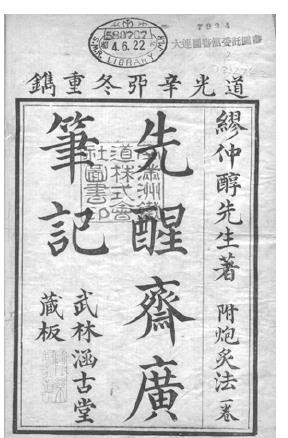 7924
大連圖書館委託圖書
580707
4.6.22
LIBRARY
道光辛卯冬重鐫
繆仲醇先生著 附炮炙法一卷
先醒齋廣
筆記
武林涵古堂
藏板
南滿洲鐵
道株式會
社圖書印